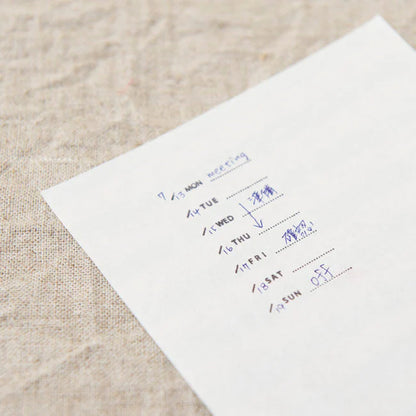 7/13 MON meeting
/14 TUE
/15 WED 準備
/16 THU
/17 FRI 締切!
/18 SAT
/19 SUN off